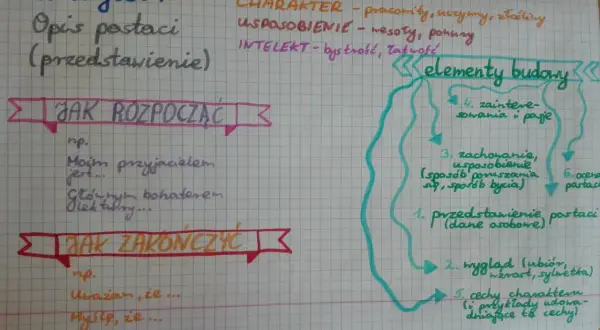 CHARAKTER - pracowity, uczynny, złośliwy
USPOSOBIENIE - wesoły, ponury
INTELEKT - bystrość, łatwość
Opis postaci
(przedstawienie)
JAK ROZPOCZĄĆ
np.
Moim przyjacielem
jest...
Głównym bohaterem
lektury...
JAK ZAKOŃCZYĆ
np.
Uważam, że ...
Myślę, że ...
elementy budowy
4. zaintere-
sowania i pasje
3. zachowanie,
usposobienie
(sposób poruszania
się, sposób bycia)
6. ocena
postaci
1. przedstawienie postaci
(dane osobowe)
2. wygląd (ubiór,
wzrost, sylwetka)
5. cechy charakteru
(i przykłady udowa-
dniające te cechy)